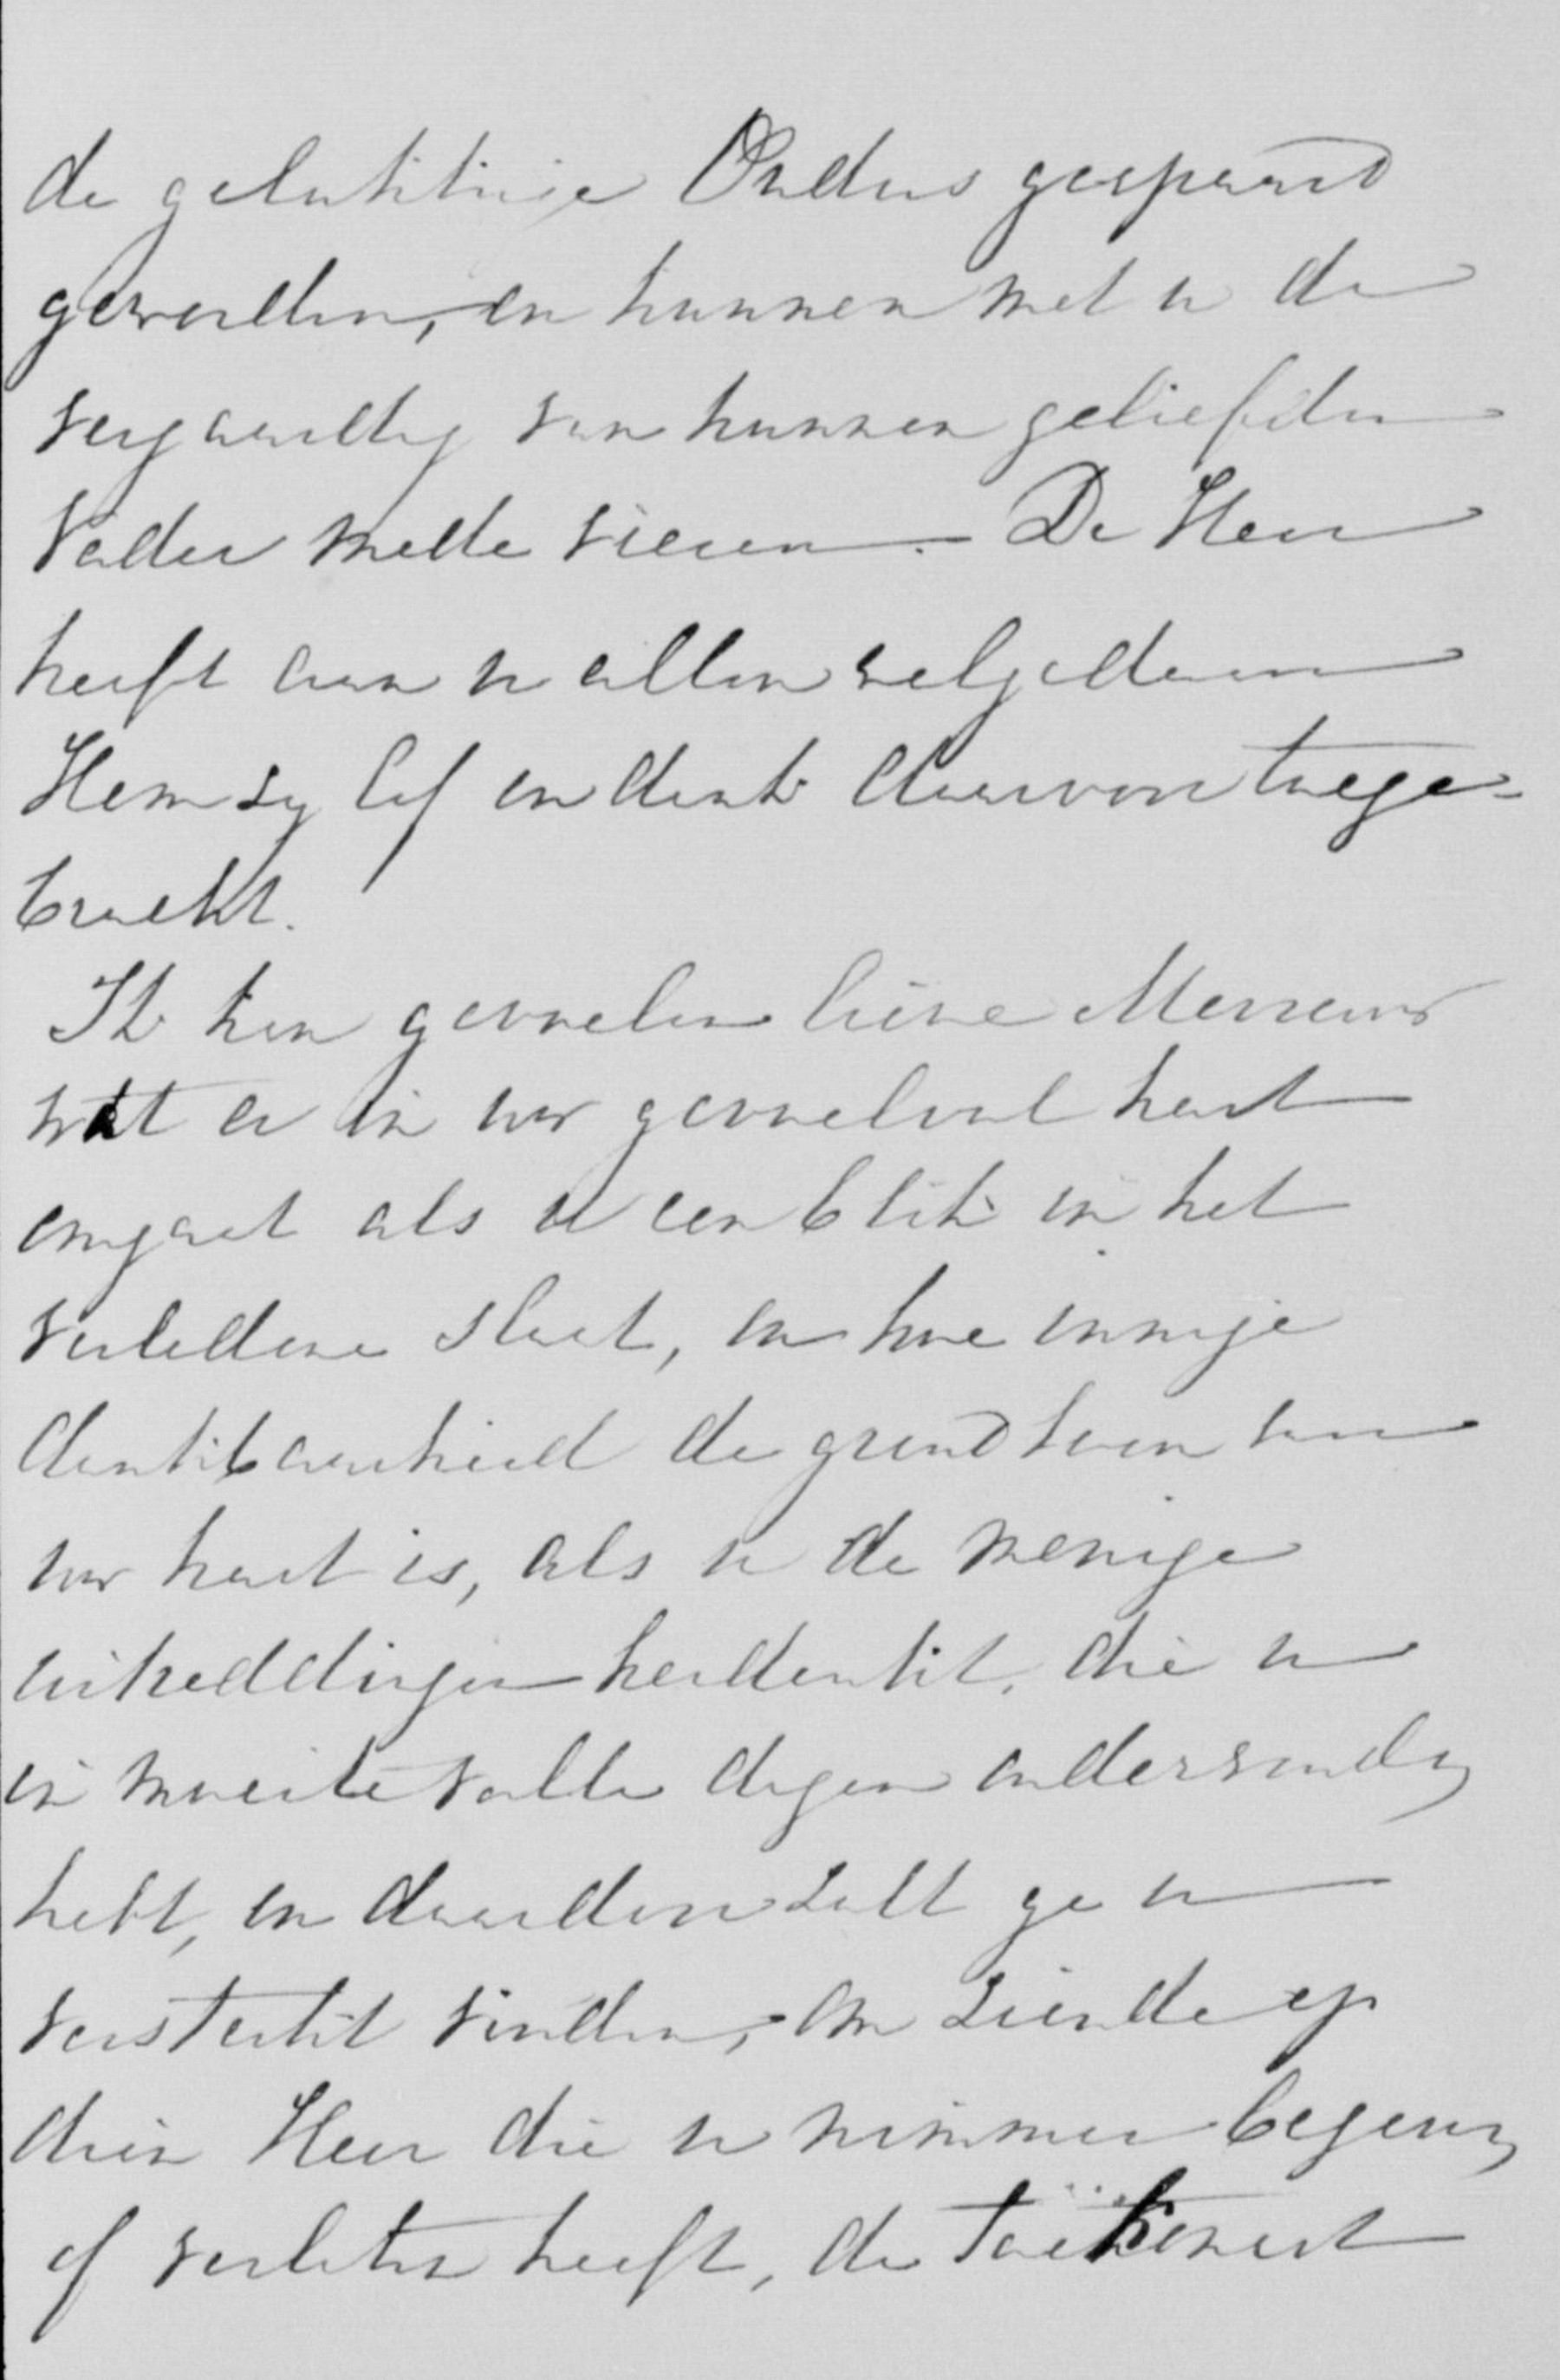 de gelukkige Ouders gespaard
geworden, en kunnen met u de
verjaardag van hunnen geliefden
Vader mede vieren. De Heer
heeft aan u allen welgedaan
Hem zy lof en dank daarvoor toege-
bracht.
Ik kan gevoelen lieve Mevrouw
wat er in uw gevoelvol hart
omgaat als u een blik in het
verledene slaat, en hoe innige
dankbaarheid de grondtoon van
uw hart is, als u de menige
uitreddingen herdenkt, die u
in moeitevolle dagen ondervonden
hebt, en daardoor zult ge u
versterkt vinden, om ziende op
dien Heer die u nimmer begeven
of verlaten heeft, de toekomst